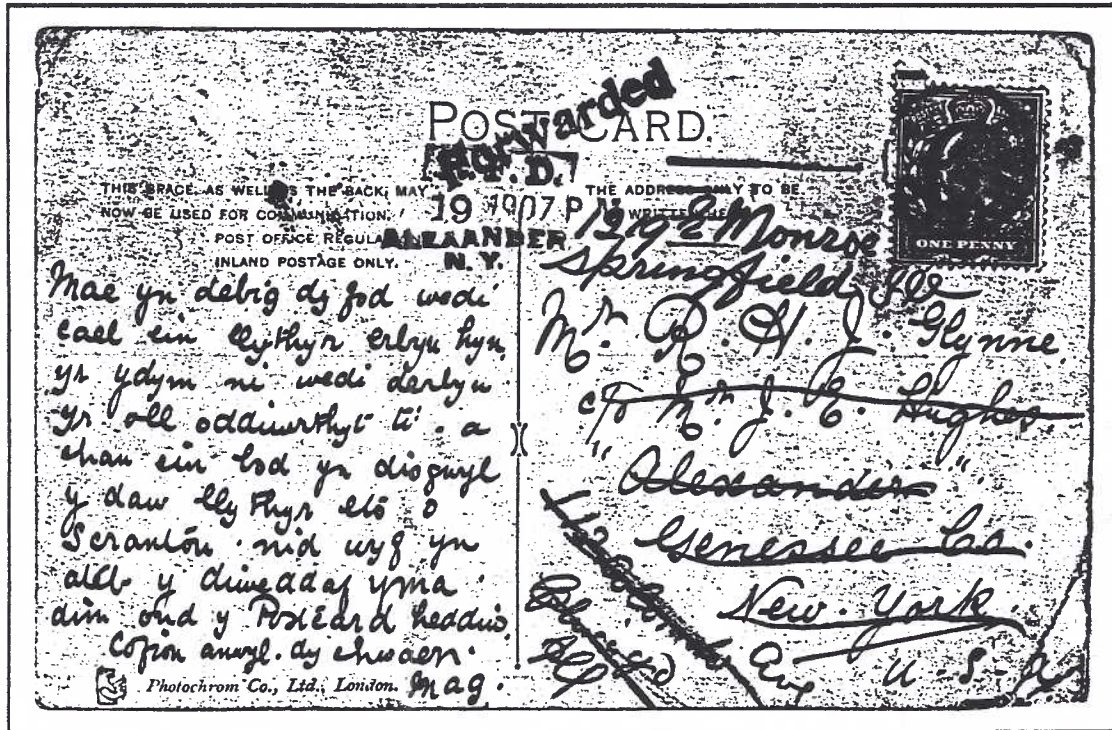 POST CARD.
Forwarded
THIS SPACE, AS WELL AS THE BACK, MAY
NOW BE USED FOR COMMUNICATION.
POST OFFICE REGULA
INLAND POSTAGE ONLY.
THE ADDRESS ONLY TO BE
WRITTEN HE
19 1907 P
ALEXANDER
N. Y.
ONE PENNY
Mae yn debig dy fod wedi
cael ein llythyr erbyn hyn.
yr ydym ni wedi derbyn
yr oll oddiwrthyt ti. a
chan ein bod yn disgwyl
y daw llythyr eto o
Scranton. nid wyf yn
ateb y diweddaf yma
dim ond y Postcard heddiw.
Cofion anwyl. dy chwaer.
Mag.
Photochrom Co., Ltd., London.
1219 E Monroe
Springfield Ill
Mr. R. H. J. Glynne.
c/o Mr J. E. Hughes.
" Alexander "
Genessee Co.
New. York.
U-S-A.
Ave
Chicago
Ill